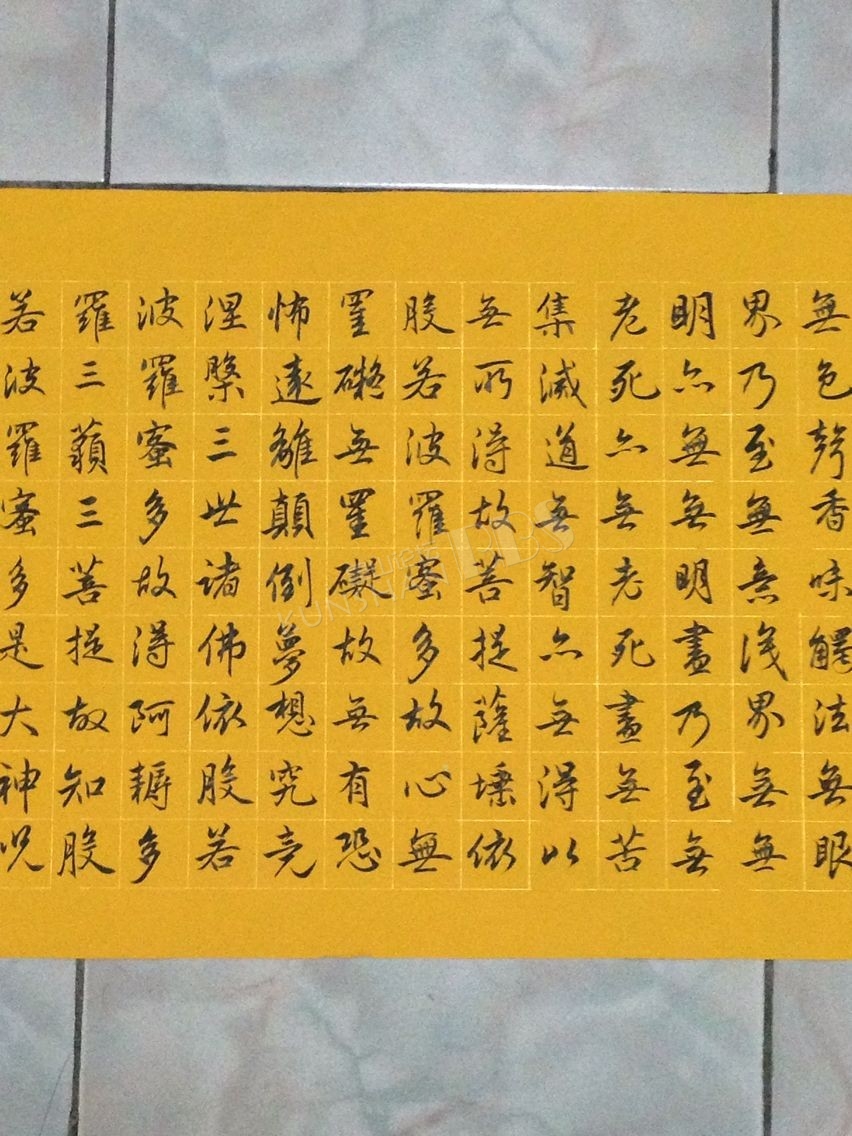 無色聲香味觸法無眼
界乃至無意識界無無
明亦無無明盡乃至無
老死亦無老死盡無苦
集滅道無智亦無得以
無所得故菩提薩埵依
般若波羅蜜多故心無
罣礙無罣礙故無有恐
怖遠離顛倒夢想究竟
涅槃三世諸佛依般若
波羅蜜多故得阿耨多
羅三藐三菩提故知般
若波羅蜜多是大神呪
KUNSHAN BBS